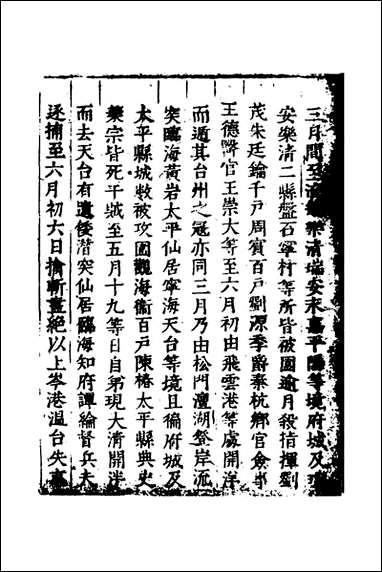 三月間至溫州樂清瑞安永嘉平陽等境府城及瑞
安樂清二縣盤石寧村等所皆被圍逾月殺指揮劉
茂朱廷鑰千戶周賓百戶劉源季爵秦杭鄉官僉事
王德醫官王崇大等至六月初由飛雲港等處開洋
而遁其台州之寇亦同三月乃由松門澶湖登岸流
突臨海黃岩太平仙居寧海天台等境且偪府城及
太平縣城數被攻圍觀海衛百戶陳椿太平縣典史
葉宗皆死于賊至五月十九等日自第現大清開洋
而去天台有遺倭潛突仙居臨海知府譚綸督兵夫
逐捕至六月初六日擒斬盡絕以上岑港溫台失事